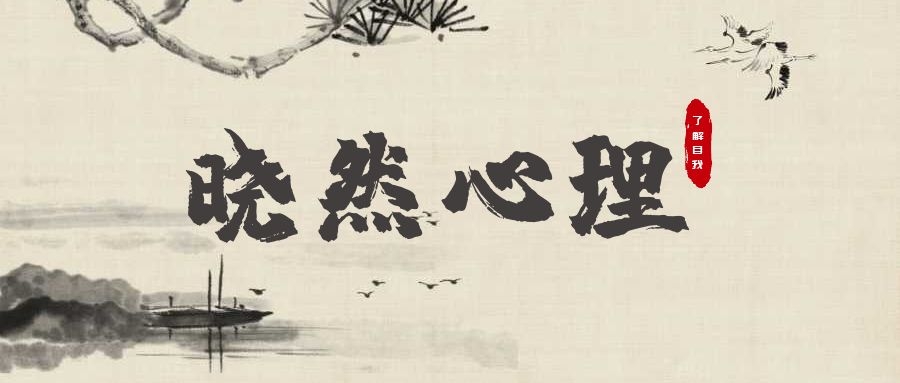 晓然心理
了解自我